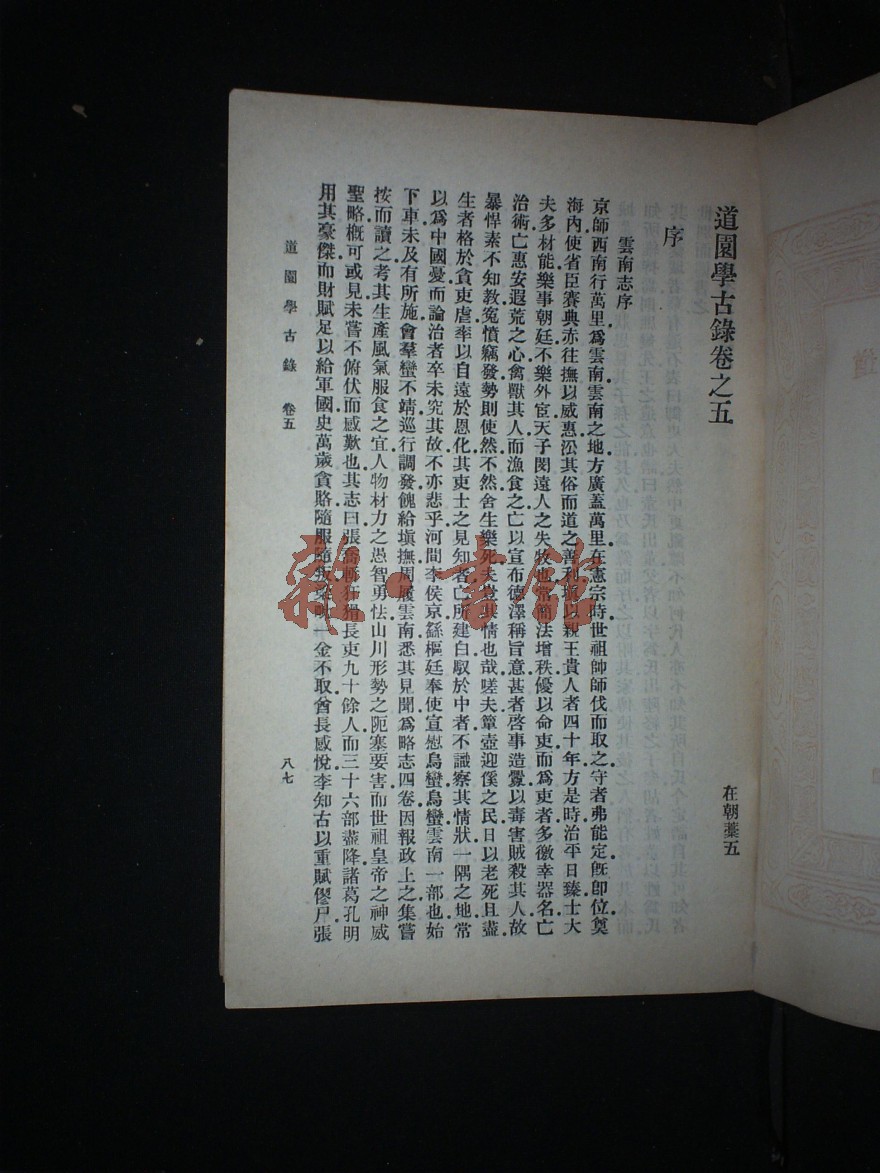 道園學古錄卷之五
在朝藁五
序
雲南志序
京師西南行萬里爲雲南雲南之地方廣蓋萬里在憲宗時世祖帥師伐而取之守者弗能定旣卽位奠
海內使省臣賽典赤往撫以威惠沿其俗而道之善利鎮以親王貴人者四十年方是時治平日臻士大
夫多材能樂事朝廷不樂外宦天子閔遠人之失牧也常簡法增秩優以命吏而爲吏者多徼幸器名亡
治術亡惠安遐荒之心禽獸其人而漁食之亡以宣布德澤稱旨意甚者啓事造釁以毒害賊殺其人故
暴悍素不知敎寃憤竊發勢則使然不然舍生樂死夫豈其情也哉嗟夫簞壺迎徯之民日以老死且盡
生者格於貪吏虐率以自遠於恩化其吏士之見知者亡所建白馭於中者不識察其情狀一隅之地常
以爲中國憂而論治者卒未究其故不亦悲乎河間李侯京繇樞廷奉使宣慰烏蠻烏蠻雲南一部也始
下車未及有所施會羣蠻不靖巡行調發餽給塡撫周履雲南悉其見聞爲略志四卷因報政上之集嘗
按而讀之考其生產風氣服食之宜人物材力之愚智勇怯山川形勢之阨塞要害而世祖皇帝之神威
聖略槪可或見未嘗不俯伏而感歎也其志曰張喬斬狂猾長吏九十餘人而三十六部盡降諸葛孔明
用其豪傑而財賦足以給軍國史萬歲貪賂隨服隨叛梁毗一金不取酋長感悅李知古以重賦僇尸張
道園學古錄 卷五
八七
雜·書館